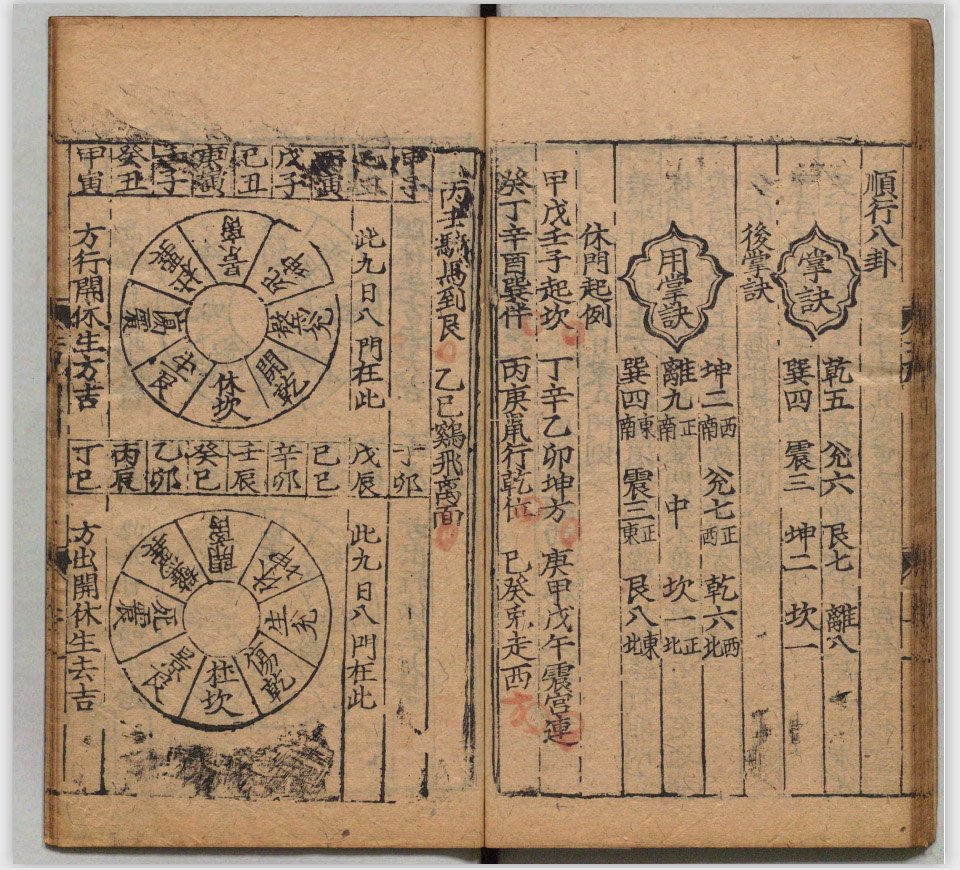 順行八卦
掌訣
乾五 兊六 艮七 離八
巽四 震三 坤二 坎一
後掌訣
用掌訣
坤二西南 兊七正西 乾六西北
離九正南 中 坎一正北
巽四東南 震三正東 艮八東北
休門起例
甲戊壬子起坎 丁辛乙卯坤方 庚甲戊午震宮連
癸丁辛酉巽伴 丙庚鼠行乾位 巳癸兎走西
丙壬 馬到艮 乙巳鷄飛离面
甲子
戊子
己丑
庚寅
壬子
癸丑
甲寅
此九日八門在此
景离
死坤
驚兊
開乾
休坎
生艮
傷震
杜巽
方行開休生方吉
丁卯
戊辰
己巳
辛卯
壬辰
癸巳
乙卯
丙辰
丁巳
此九日八門在此
開离
休坤
生兊
傷乾
杜坎
景艮
死震
驚巽
方出開休生去吉